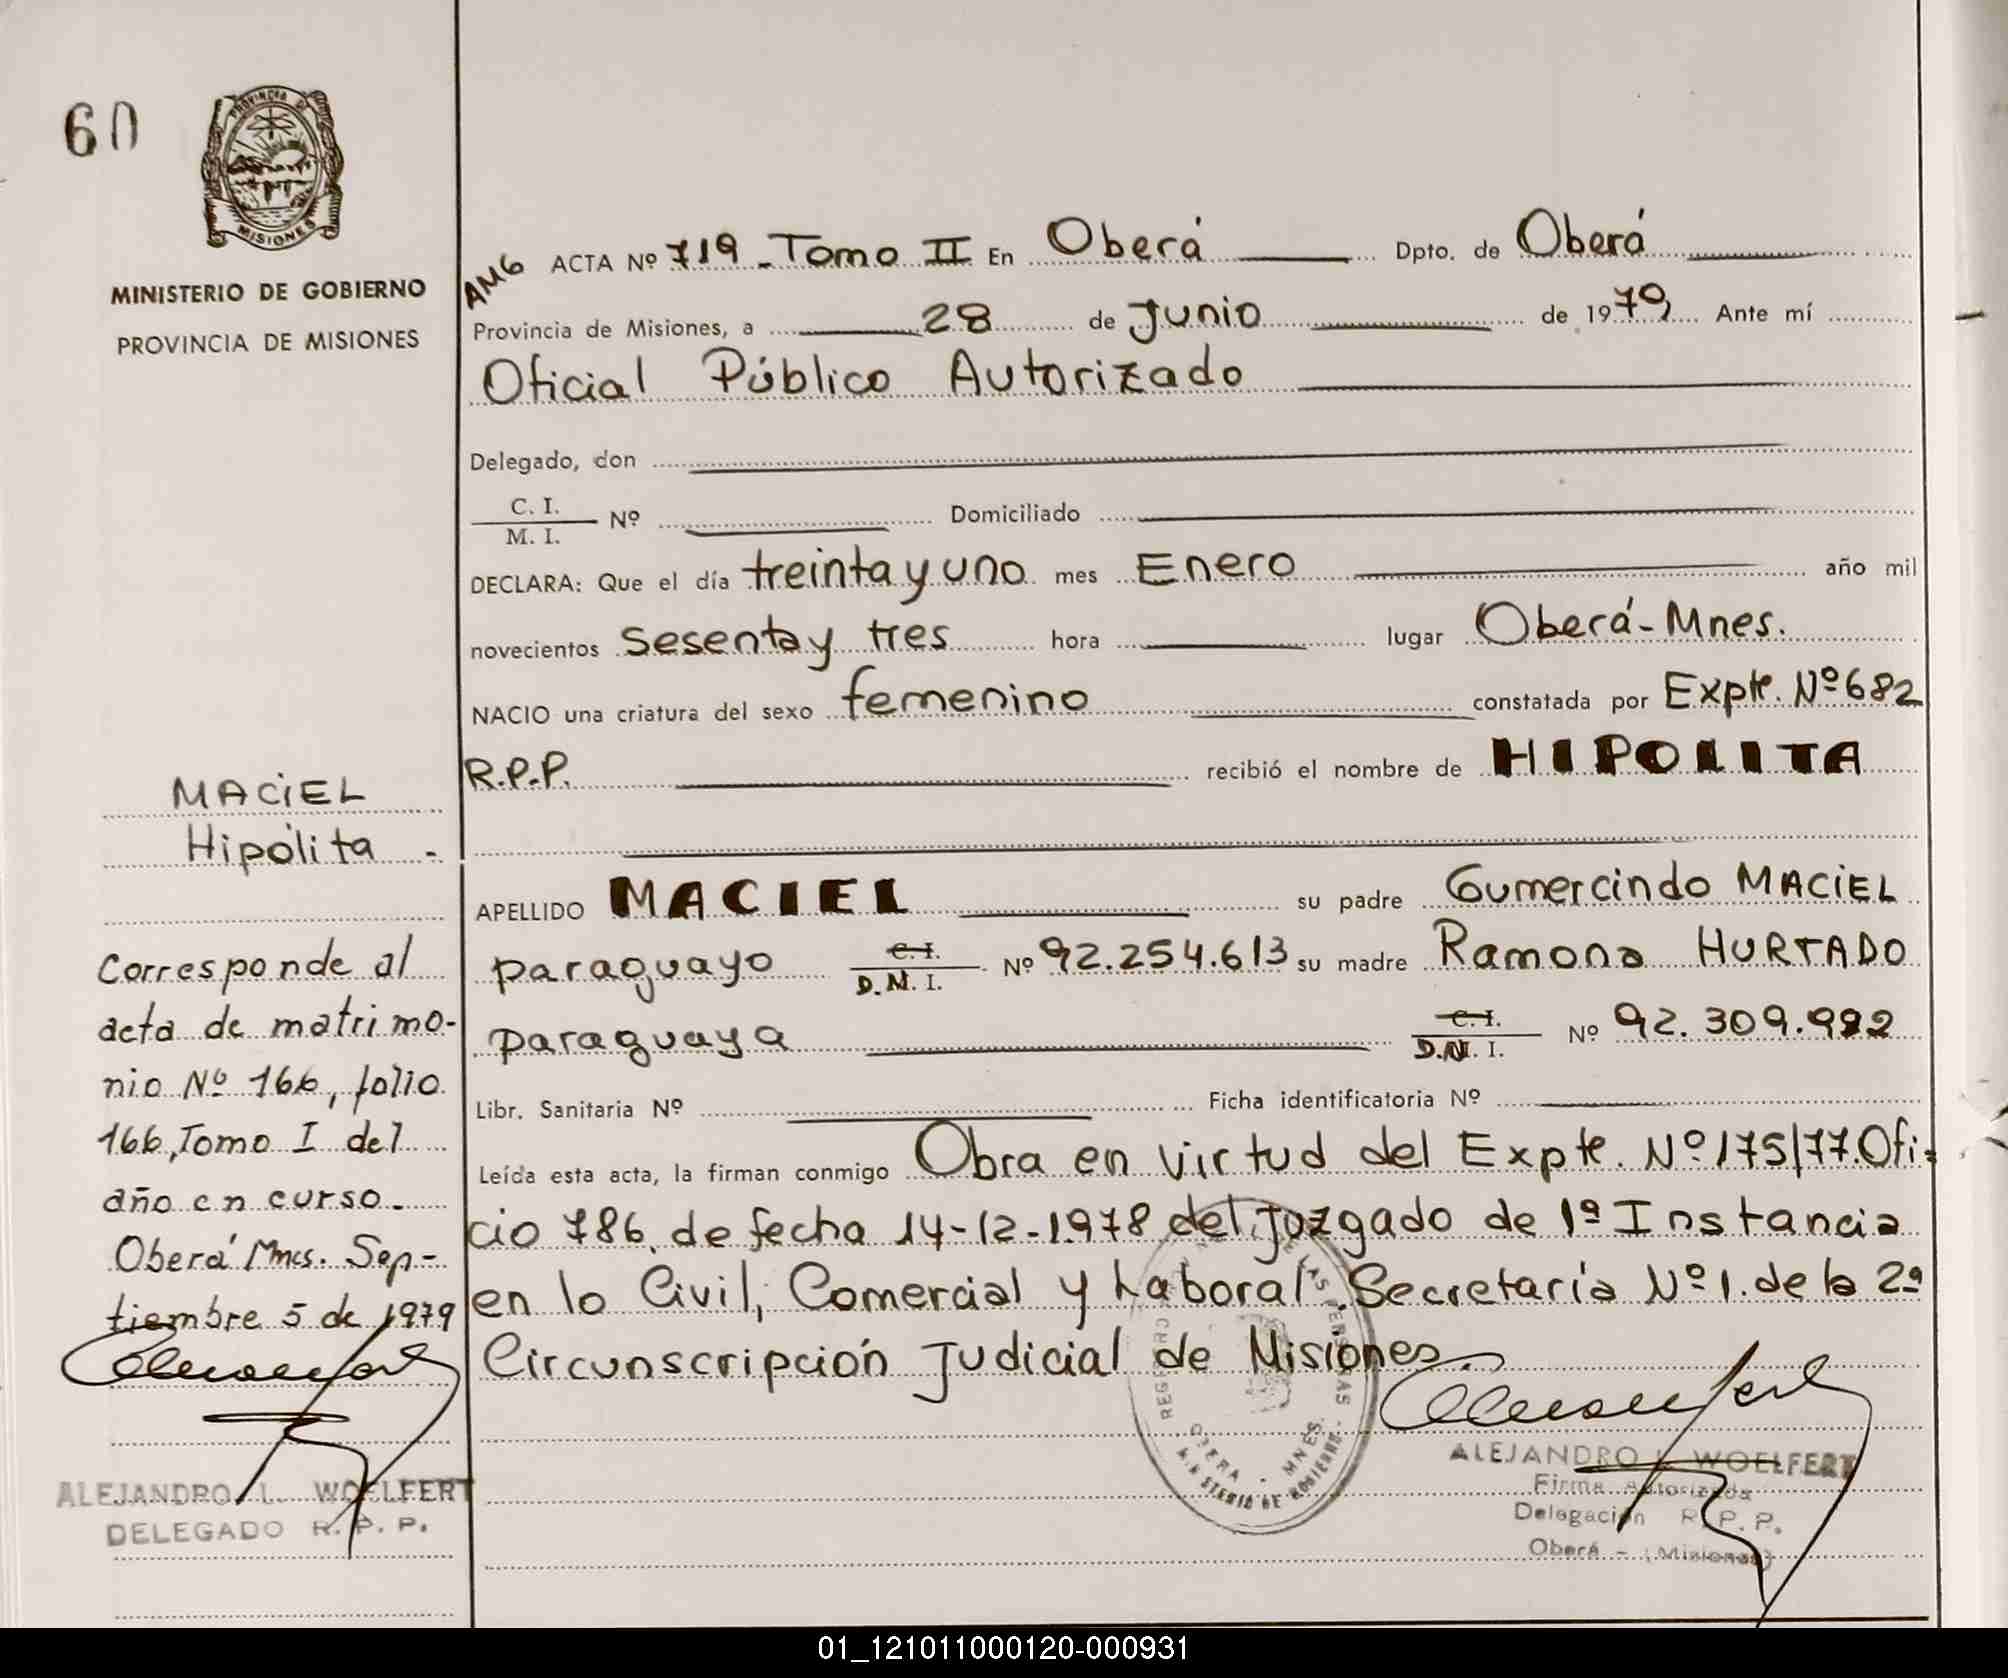 60
PROVINCIA DE
MISIONES
MINISTERIO DE GOBIERNO
PROVINCIA DE MISIONES
MACIEL
Hipólita -
Corresponde al
acta de matrimo-
nio Nº 166, folio
166, Tomo I del
año en curso.
Oberá Mnes. Sep-
tiembre 5 de 1979
ALEJANDRO L. WOELFERT
DELEGADO R. P. P.
AMG ACTA Nº 719 - Tomo II En Oberá Dpto. de Oberá
Provincia de Misiones, a 28 de Junio de 1979 Ante mí
Oficial Público Autorizado
Delegado, don
C. I.
M. I. Nº Domiciliado
DECLARA: Que el día treinta y uno mes Enero año mil
novecientos sesenta y tres hora lugar Oberá-Mnes.
NACIO una criatura del sexo femenino constatada por Expte. Nº 682
R.P.P. recibió el nombre de HIPOLITA
APELLIDO MACIEL su padre Gumercindo MACIEL
paraguayo C. I. D.N. I. Nº 92.254.613 su madre Ramona HURTADO
paraguaya C. I. D.N. I. Nº 92.309.992
Libr. Sanitaria Nº Ficha identificatoria Nº
Leída esta acta, la firman conmigo Obra en virtud del Expte. Nº 175/77. Ofi-
cio 786, de fecha 14-12-1978 del Juzgado de 1ª Instancia
en lo Civil, Comercial y Laboral. Secretaría Nº 1. de la 2ª
Circunscripción Judicial de Misiones.
OBERA - MNES.
MINISTERIO DE GOBIERNO
ALEJANDRO L. WOELFERT
Firma Autorizada
Delegación R. P. P.
Oberá - (Misiones)
01_121011000120-000931